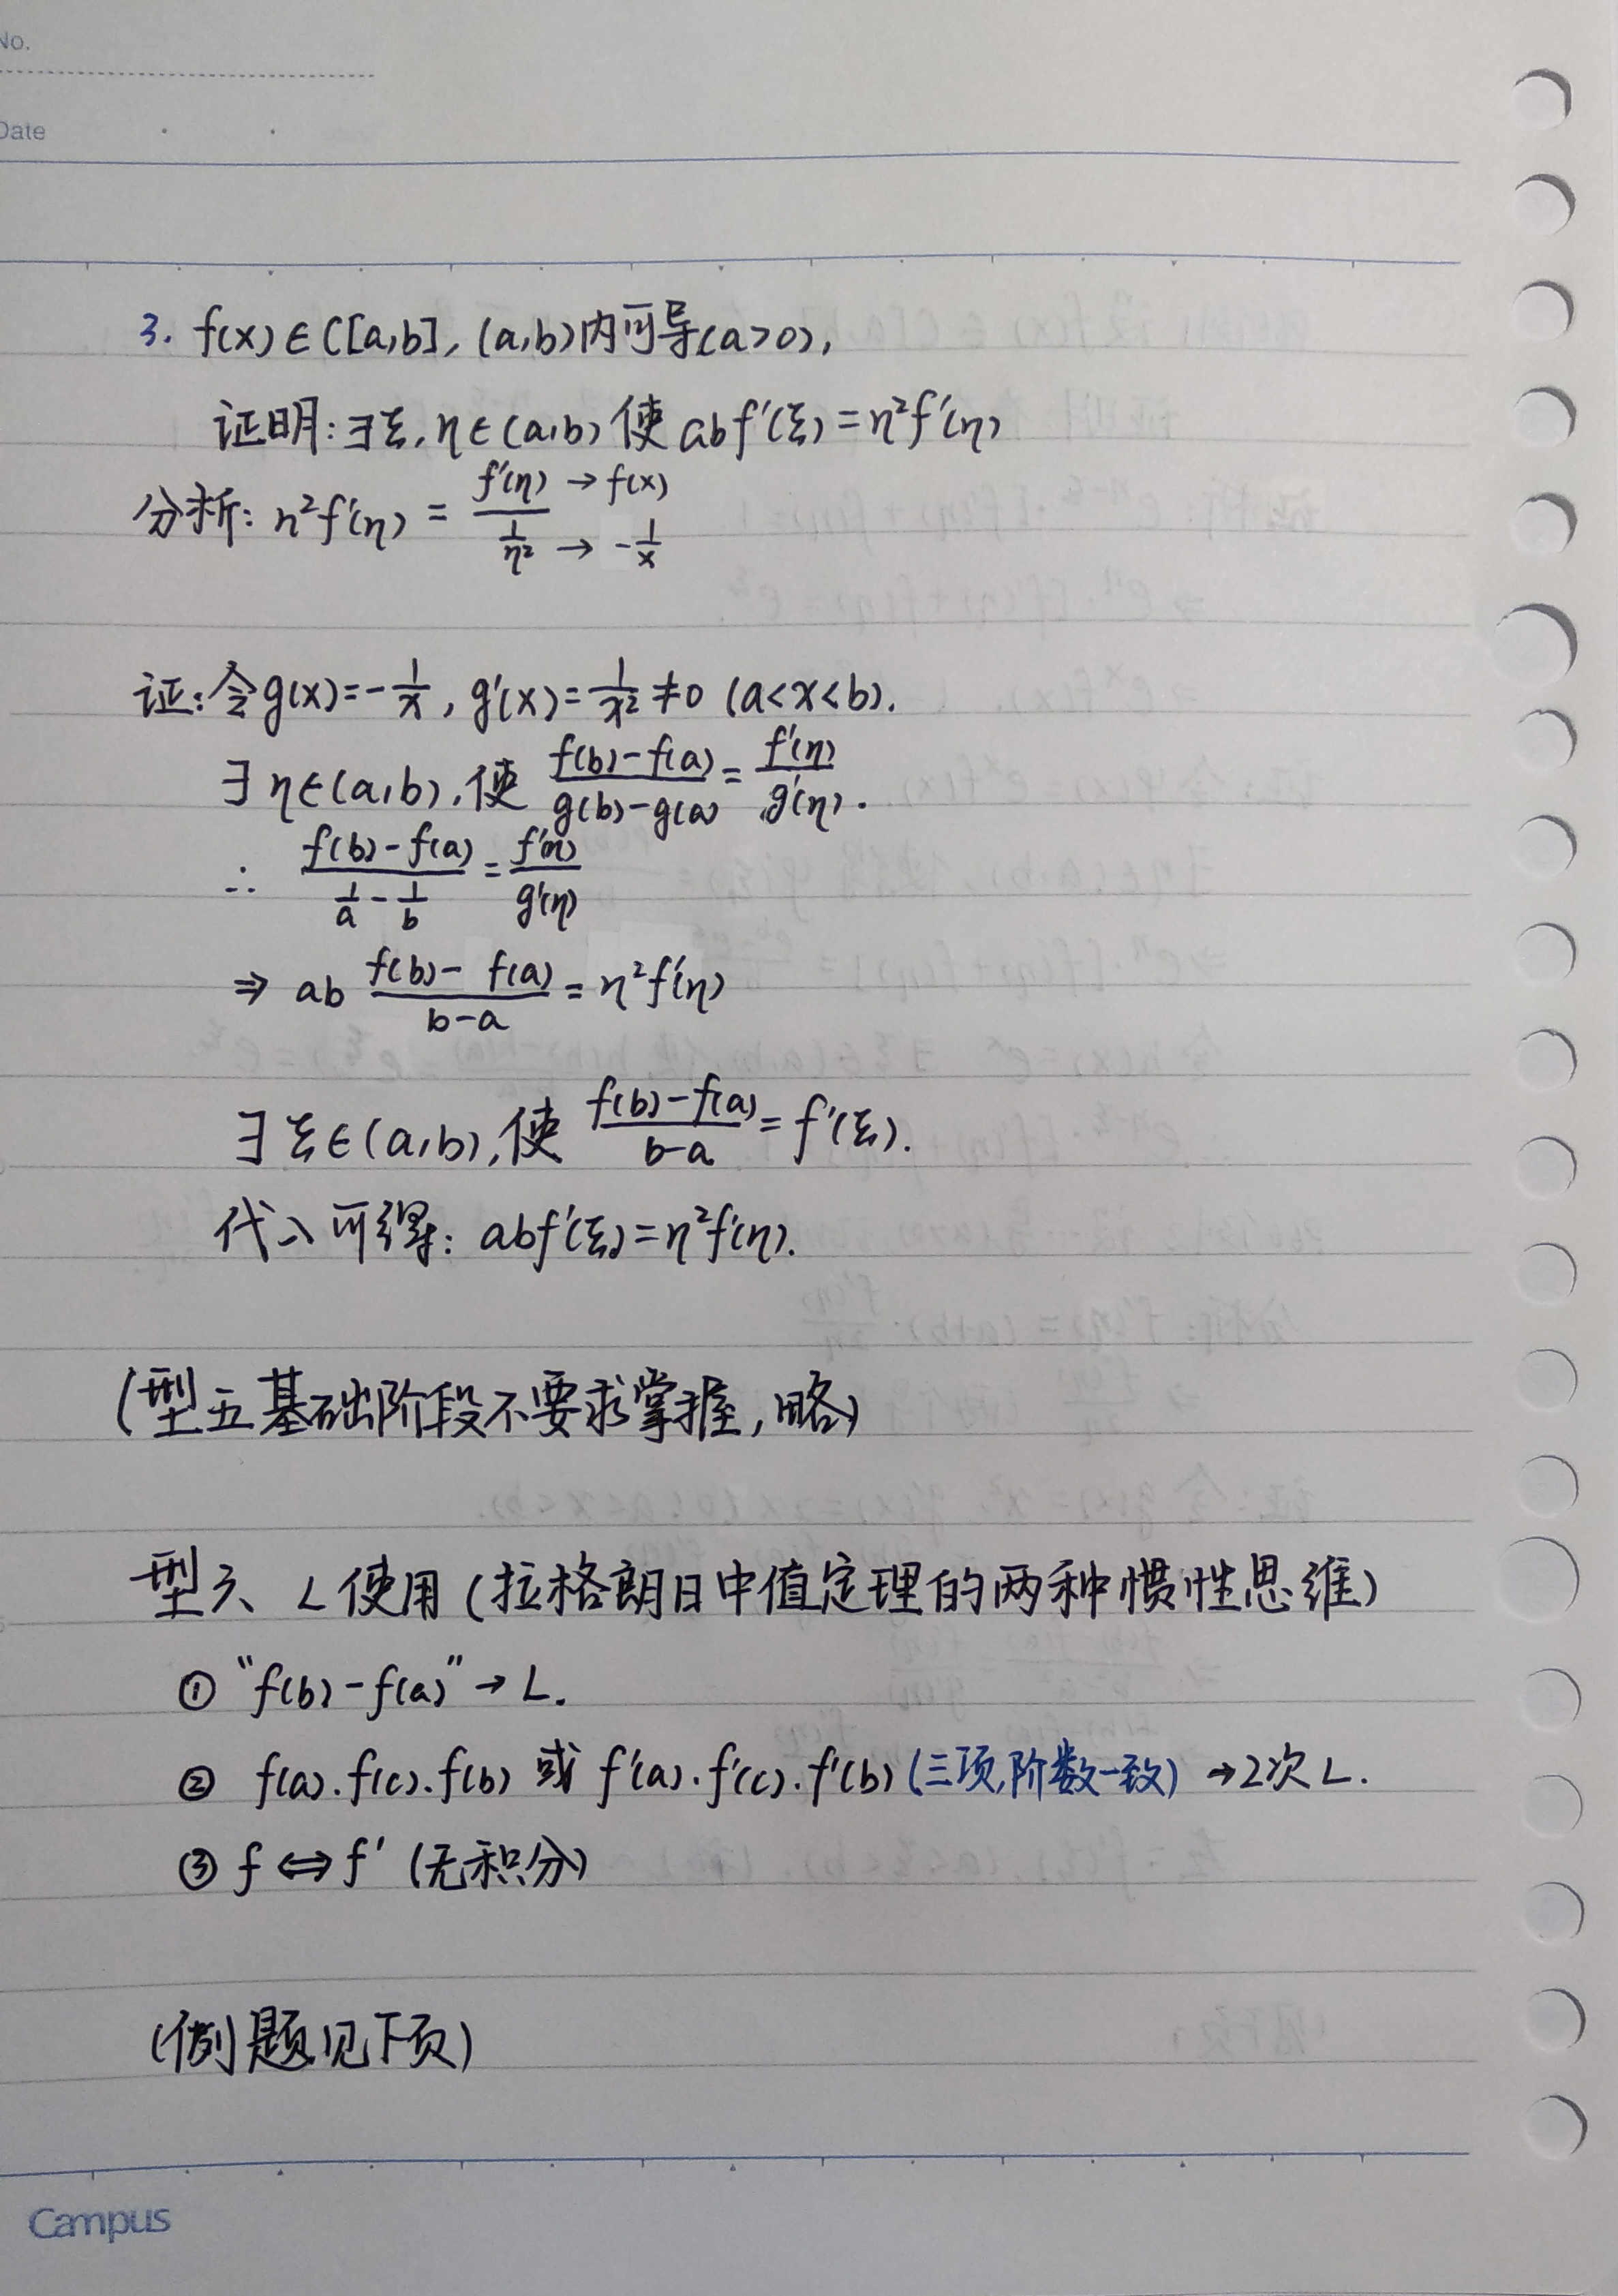 No.
Date
3. f(x)∈C[a,b], (a,b)内可导(a>0),
证明:∃ξ,η∈(a,b)使abf'(ξ)=η²f'(η)
分析: η²f'(η) = f'(η)/(1/η²) → f(x) → -1/x
证:令g(x)=-1/x, g'(x)=1/x²≠0 (a<x<b).
∃η∈(a,b),使 (f(b)-f(a))/(g(b)-g(a)) = f'(η)/g'(η).
∴ (f(b)-f(a))/(1/a-1/b) = f'(η)/g'(η)
⇒ ab (f(b)-f(a))/(b-a) = η²f'(η)
∃ξ∈(a,b),使 (f(b)-f(a))/(b-a) = f'(ξ).
代入可得: abf'(ξ)=η²f'(η).
(型五基础阶段不要求掌握,略)
型六、L使用(拉格朗日中值定理的两种惯性思维)
① "f(b)-f(a)"→L.
② f(a).f(c).f(b) 或 f'(a).f'(c).f'(b) (三项,阶数一致) →2次L.
③ f⇔f' (无积分)
(例题见下页)
Campus